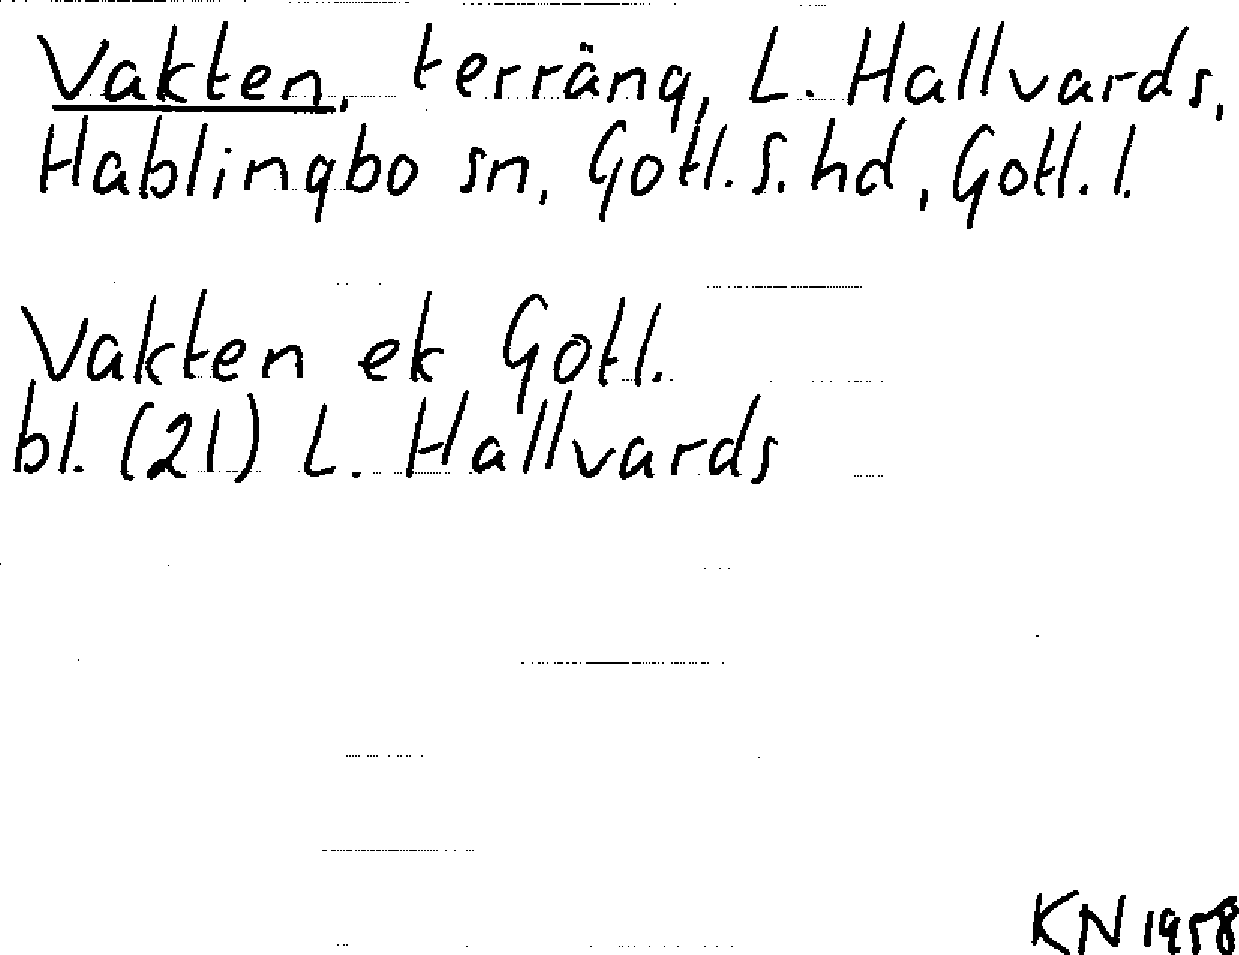 Vakten, terräng, L. Hallvards,
Hablingbo sn, Gotl. S. hd, Gotl. l.
Vakten ek Gotl.
bl. (21) L. Hallvards
KN 1958